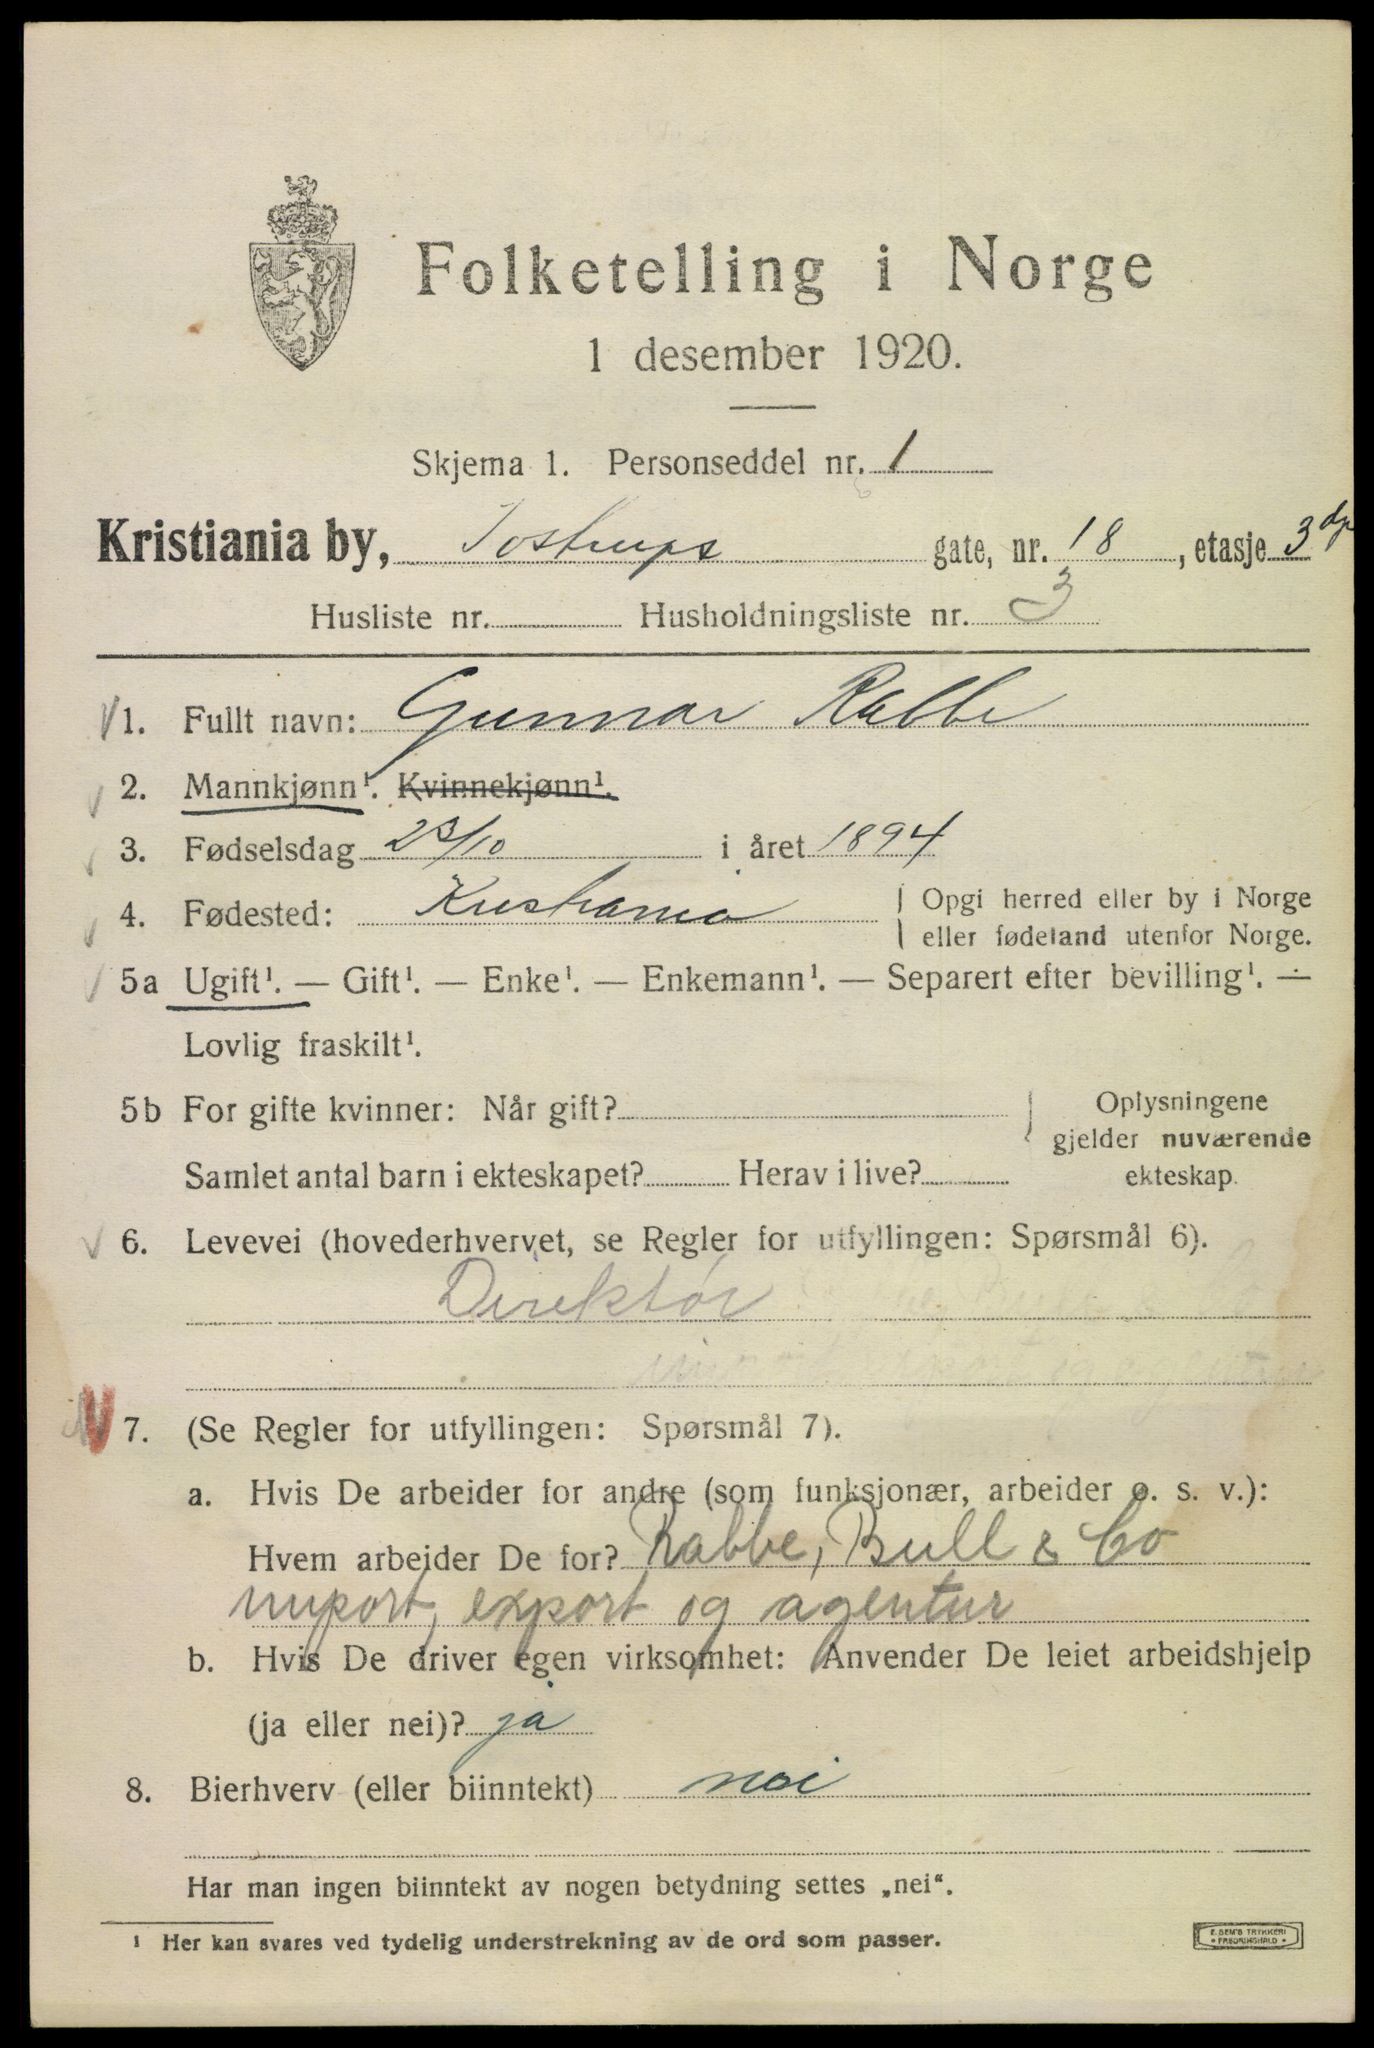 Folketelling i Norge
1 desember 1920.
Skjema 1. Personseddel nr. 1
Kristiania by, Tostrups gate, nr. 18, etasje 3
Husliste nr. Husholdningsliste nr. 3
1. Fullt navn: Gunnar Rabbe
2. Mannkjønn¹. Kvinnekjønn¹.
3. Fødselsdag 23/10 i året 1894
4. Fødested: Kristiania Opgi herred eller by i Norge
eller fødeland utenfor Norge.
5a Ugift¹. — Gift¹. — Enke¹. — Enkemann¹. — Separert efter bevilling¹. —
Lovlig fraskilt¹.
5b For gifte kvinner: Når gift? Oplysningene
gjelder nuværende
Samlet antal barn i ekteskapet? Herav i live? ekteskap.
6. Levevei (hovederhvervet, se Regler for utfyllingen: Spørsmål 6).
Direktør
7. (Se Regler for utfyllingen: Spørsmål 7).
a. Hvis De arbeider for andre (som funksjonær, arbeider o. s. v.):
Hvem arbeider De for? Rabbe, Bull & Co
import, export og agentur
b. Hvis De driver egen virksomhet: Anvender De leiet arbeidshjelp
(ja eller nei)? ja
8. Bierhverv (eller biinntekt) nei
Har man ingen biinntekt av nogen betydning settes „nei“.
¹ Her kan svares ved tydelig understrekning av de ord som passer.
E. SEM'S TRYKKERI
FREDRIKSHALD